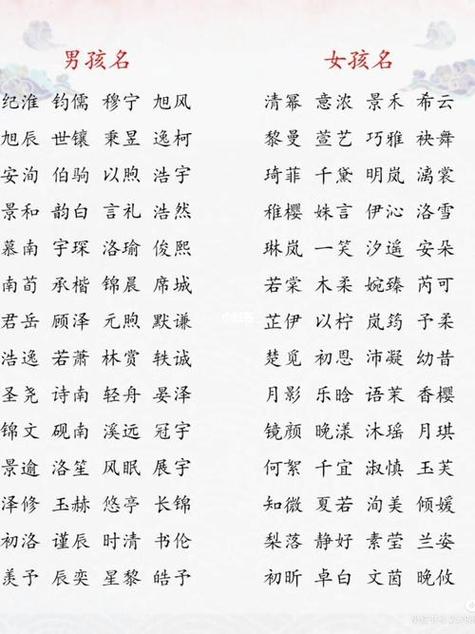 男孩名
纪淮 钧儒 穆宁 旭风
旭辰 世镶 秉昱 逸柯
安洵 伯驹 以煦 浩宇
景和 韵白 言礼 浩然
慕南 宇琛 洛瑜 俊熙
南荀 承楷 锦晨 席城
君岳 顾泽 元煦 默谦
浩逸 若萧 林赏 轶诚
圣尧 诗南 轻舟 晏泽
锦文 砚南 溪远 冠宇
景逾 洛笙 风眠 展宇
泽修 玉赫 悠亭 长锦
初洛 谨辰 时清 书伦
羡予 辰奕 星黎 皓予
女孩名
清幂 意浓 景禾 希云
黎曼 萱艺 巧雅 袂舞
琦菲 千黛 明岚 漓裳
稚樱 姝言 伊沁 洛雪
琳岚 一笑 汐遥 安朵
若棠 木柔 婉臻 芮可
芷伊 以柠 岚筠 予柔
楚觅 初恩 沛凝 幼昔
月影 乐晗 语茉 香樱
镜颜 晚漾 沐瑶 月琪
何絮 千宜 淑慎 玉芙
知微 夏若 洵美 倾媛
梨落 静好 素莹 兰姿
初昕 卓白 文茵 晚攸